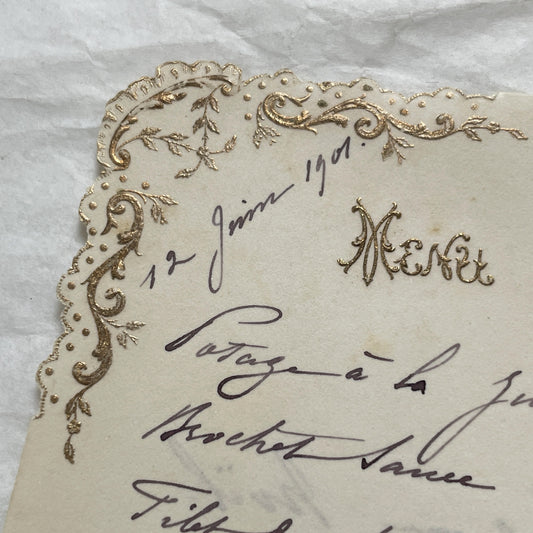 12 Juin 1901.
MENU
Potage à la
Brochet Sauce
Filet